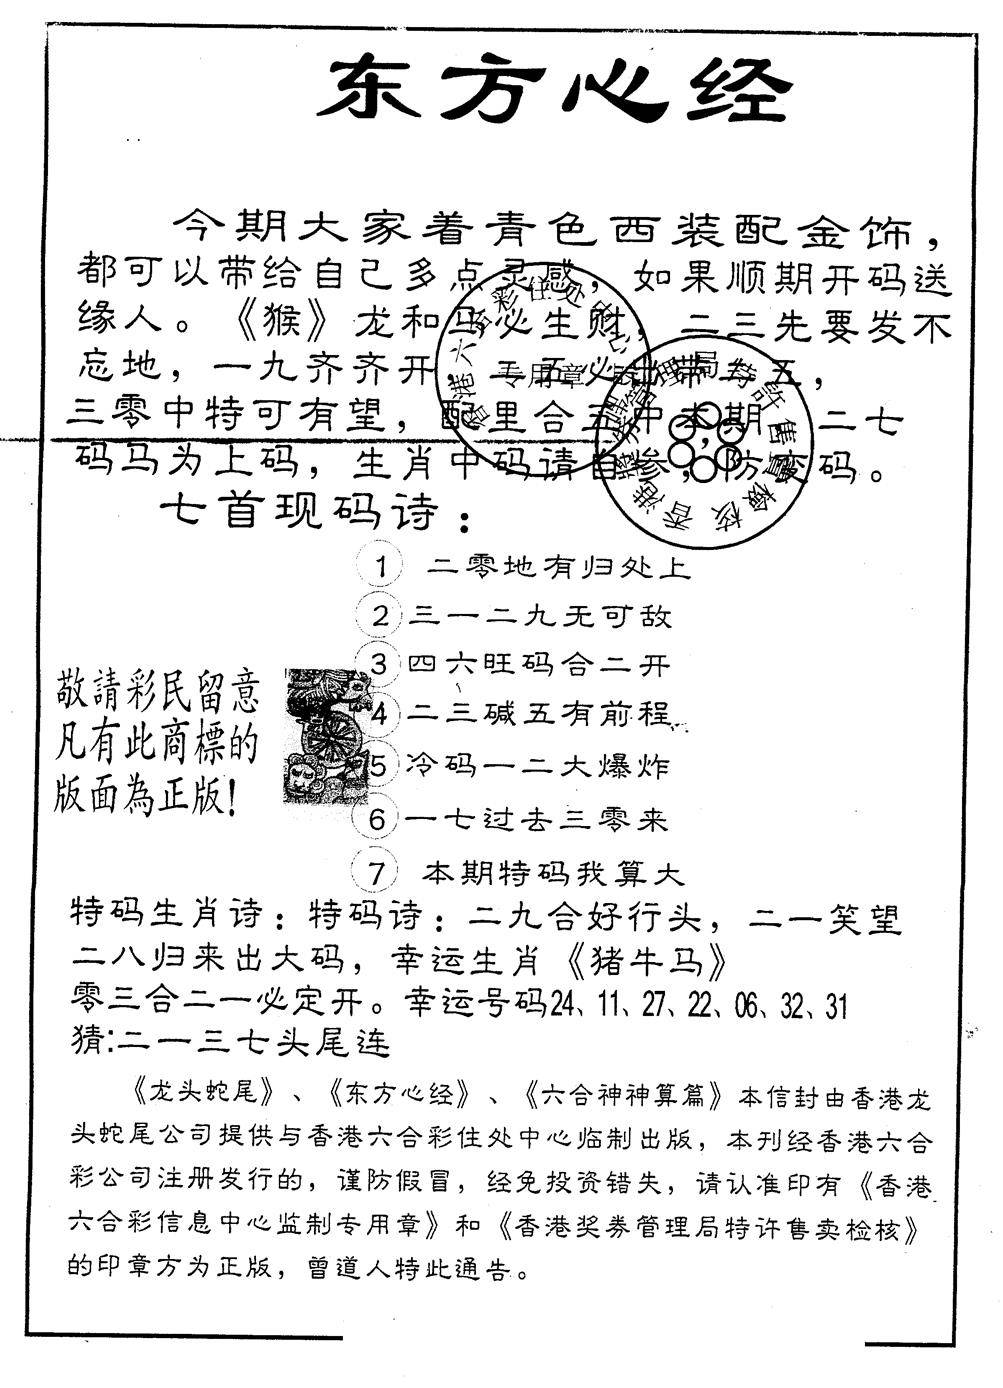 东方心经
今期大家着青色西装配金饰，
都可以带给自己多点灵感，如果顺期开码送
缘人。《猴》龙和马必生财，二三先要发不
忘地，一九齐齐开，二五必出带二五，
三零中特可有望，配里合五中本期，二七
码马为上码，生肖中码请自参，防变码。
七首现码诗：
1 二零地有归处上
2 三一二九无可敌
3 四六旺码合二开
4 二三碱五有前程
5 冷码一二大爆炸
6 一七过去三零来
7 本期特码我算大
敬請彩民留意
凡有此商標的
版面為正版！
特码生肖诗：特码诗：二九合好行头，二一笑望
二八归来出大码，幸运生肖《猪牛马》
零三合二一必定开。幸运号码24、11、27、22、06、32、31
猜:二一三七头尾连
《龙头蛇尾》、《东方心经》、《六合神神算篇》本信封由香港龙
头蛇尾公司提供与香港六合彩住处中心临制出版，本刊经香港六合
彩公司注册发行的，谨防假冒，经免投资错失，请认准印有《香港
六合彩信息中心监制专用章》和《香港奖券管理局特许售卖检核》
的印章方为正版，曾道人特此通告。
香港六合彩住处中心
专用章
香港獎券管理局特許售賣檢核